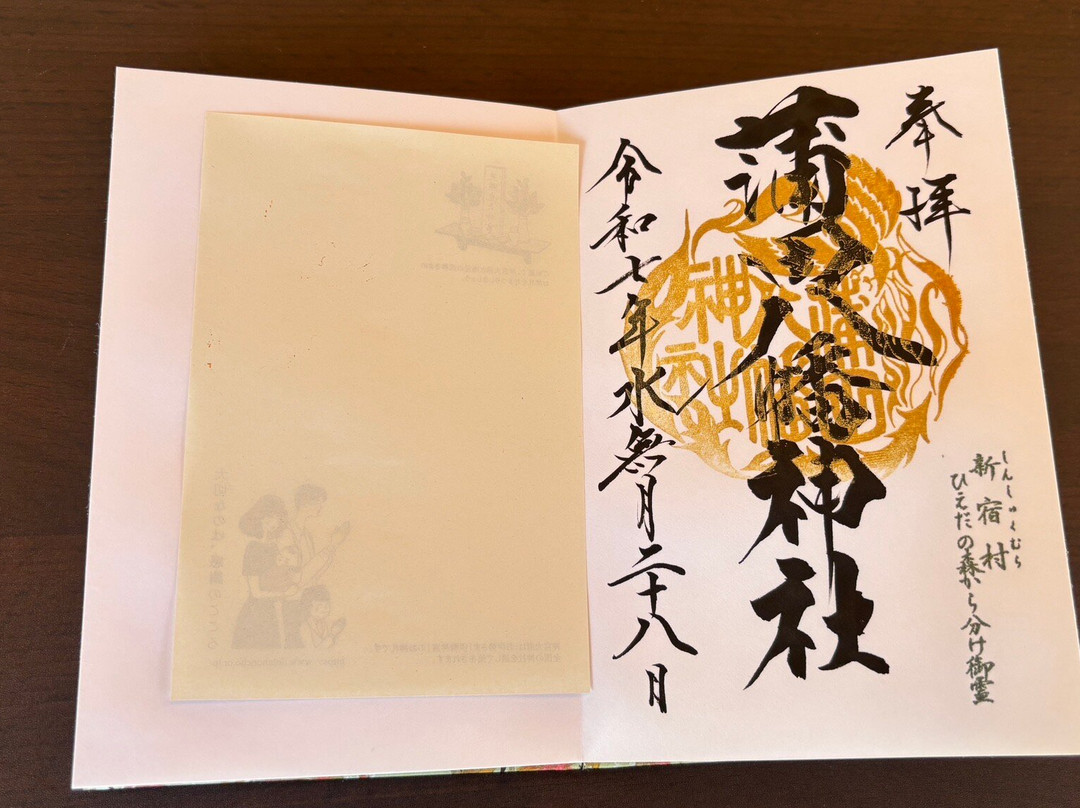 奉拝
蒲田八幡神社
令和七年水無月二十八日
しんしゅくむら
新宿村
ひえだの森から分け御霊
蒲田
八幡
神社